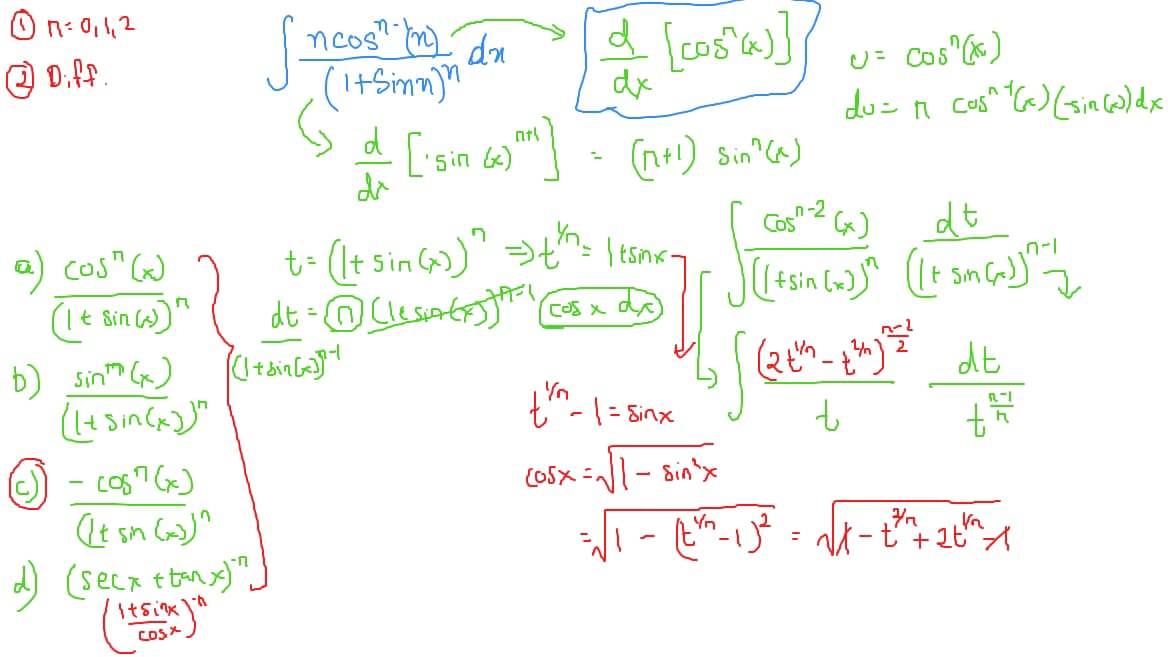 ① n = 0, 1, 2
② Diff.
∫ n cos^{n-1}(n) / (1 + Sin n)^n dn
d/dx [cos^n (x)]
u = cos^n (x)
du = n cos^{n-1}(x) (-sin(x)) dx
d/dx [sin (x)^{n+1}] = (n+1) sin^n (x)
a) cos^n (x) / (1 + sin(x))^n
b) sin^m (x) / (1 + sin(x))^n
c) - cos^n (x) / (1 + sin(x))^n
d) (sec x + tan x)^{-n}
((1 + sin x) / cos x)^{-n}
t = (1 + sin(x))^n ⇒ t^{1/n} = 1 + sin x
dt = n (1 + sin(x))^{n-1} cos x dx
(1 + sin(x))^{n-1}
∫ cos^{n-2} (x) / (1 + sin(x))^n dt / (1 + sin(x))^{n-1}
∫ (2t^{1/n} - t^{2/n})^{(n-2)/2} / t dt / t^{(n-1)/n}
t^{1/n} - 1 = sin x
cos x = √(1 - sin² x)
= √(1 - (t^{1/n} - 1)²) = √(1 - t^{2/n} + 2t^{1/n} - 1)